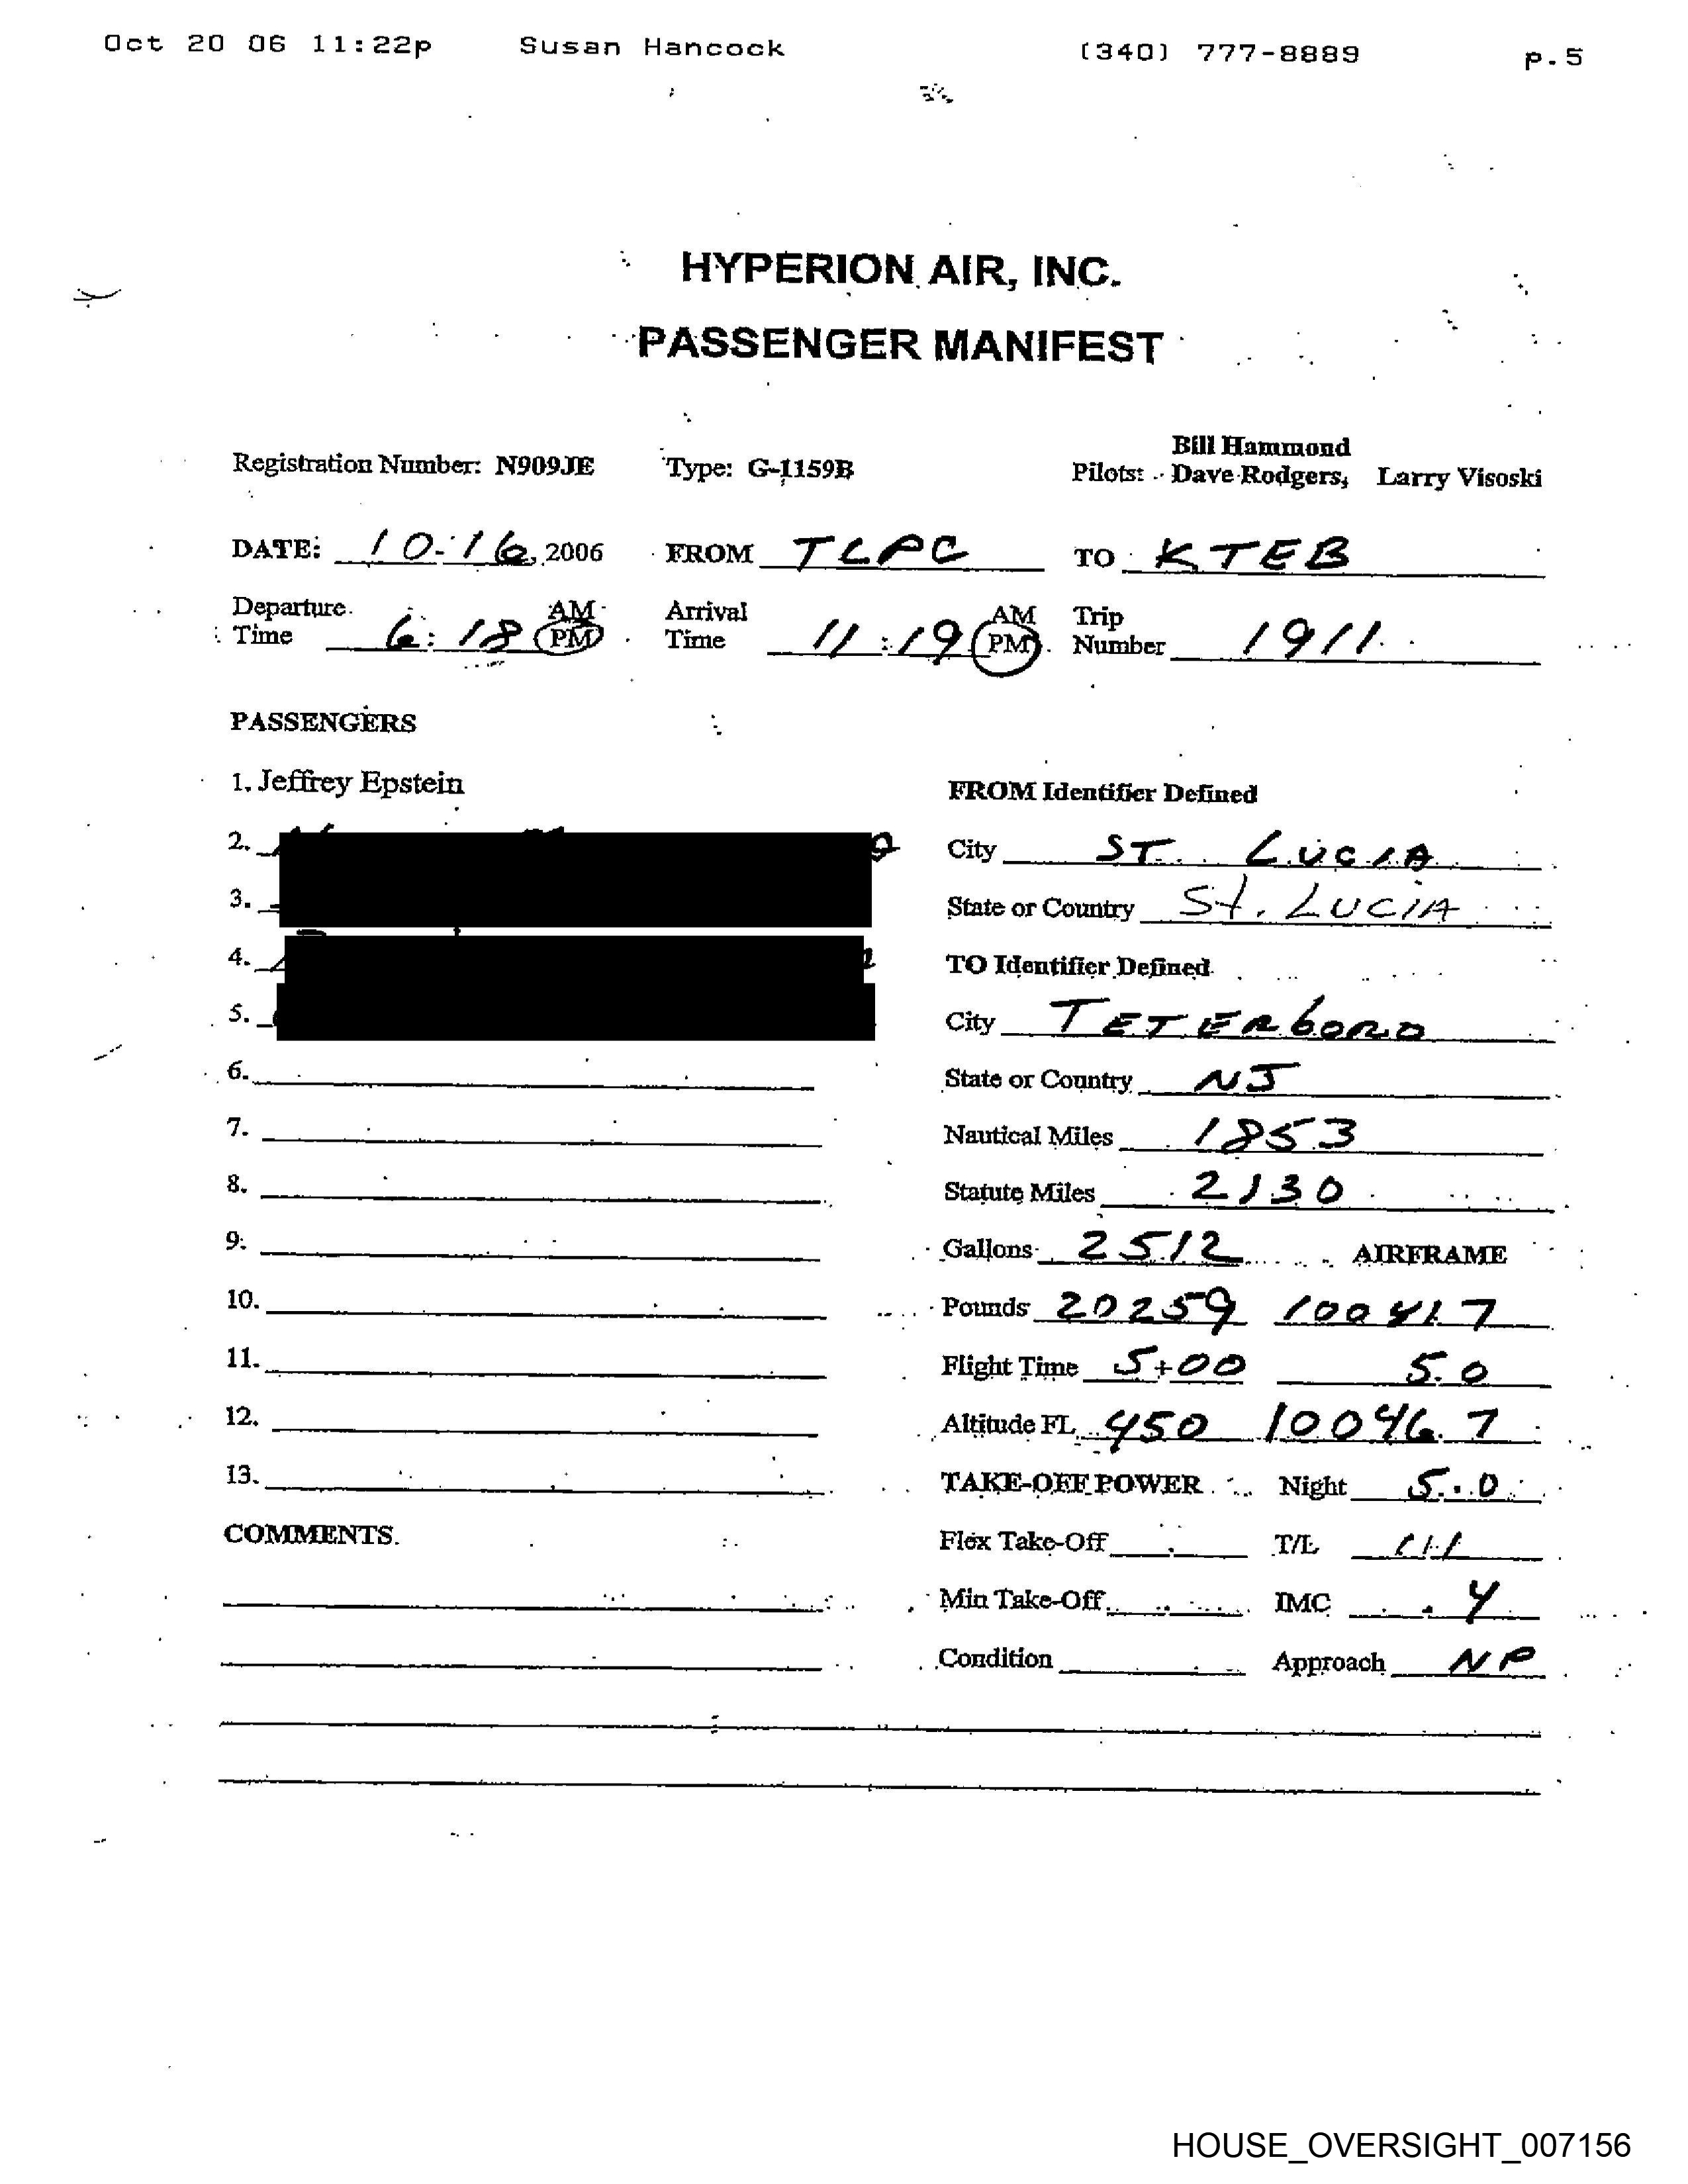 Oct 20 06 11:22p Susan Hancock (340) 777-8889 p.5
HYPERION AIR, INC.
PASSENGER MANIFEST
Bill Hammond
Registration Number: N909JE Type: G-1159B Pilots: Dave Rodgers, Larry Visoski
DATE: 10-16, 2006 FROM TLPC TO KTEB
Departure Time 6:18 AM PM Arrival Time 11:19 AM PM Trip Number 1911
PASSENGERS
1. Jeffrey Epstein
FROM Identifier Defined
2.
City ST. LUCIA
3.
State or Country St. LUCIA
4.
TO Identifier Defined
5.
City TETERboro
6.
State or Country NJ
7.
Nautical Miles 1853
8.
Statute Miles 2130
9.
Gallons 2512 AIRFRAME
10.
Pounds 20259 10041.7
11.
Flight Time 5+00 5.0
12.
Altitude FL 450 10046.7
13.
TAKE-OFF POWER Night 5.0
COMMENTS
Flex Take-Off T/L 1/1
Min Take-Off IMC .4
Condition Approach NP
HOUSE_OVERSIGHT_007156